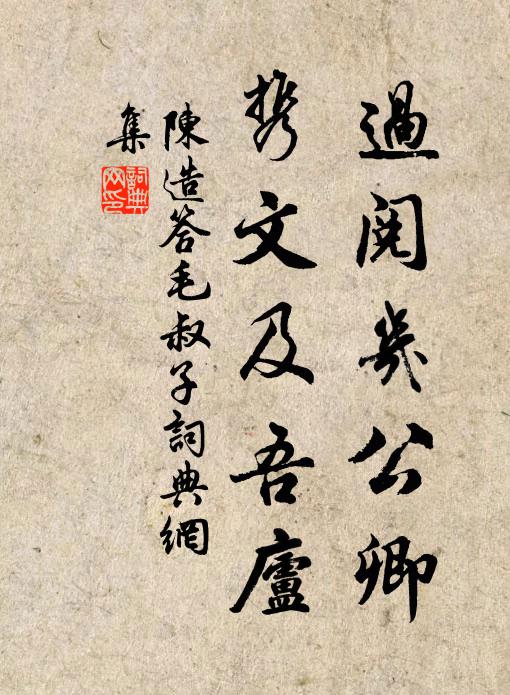 過閱幾公卿
携文及吾廬
陳造答毛叔子詞典網
集
詞典網印